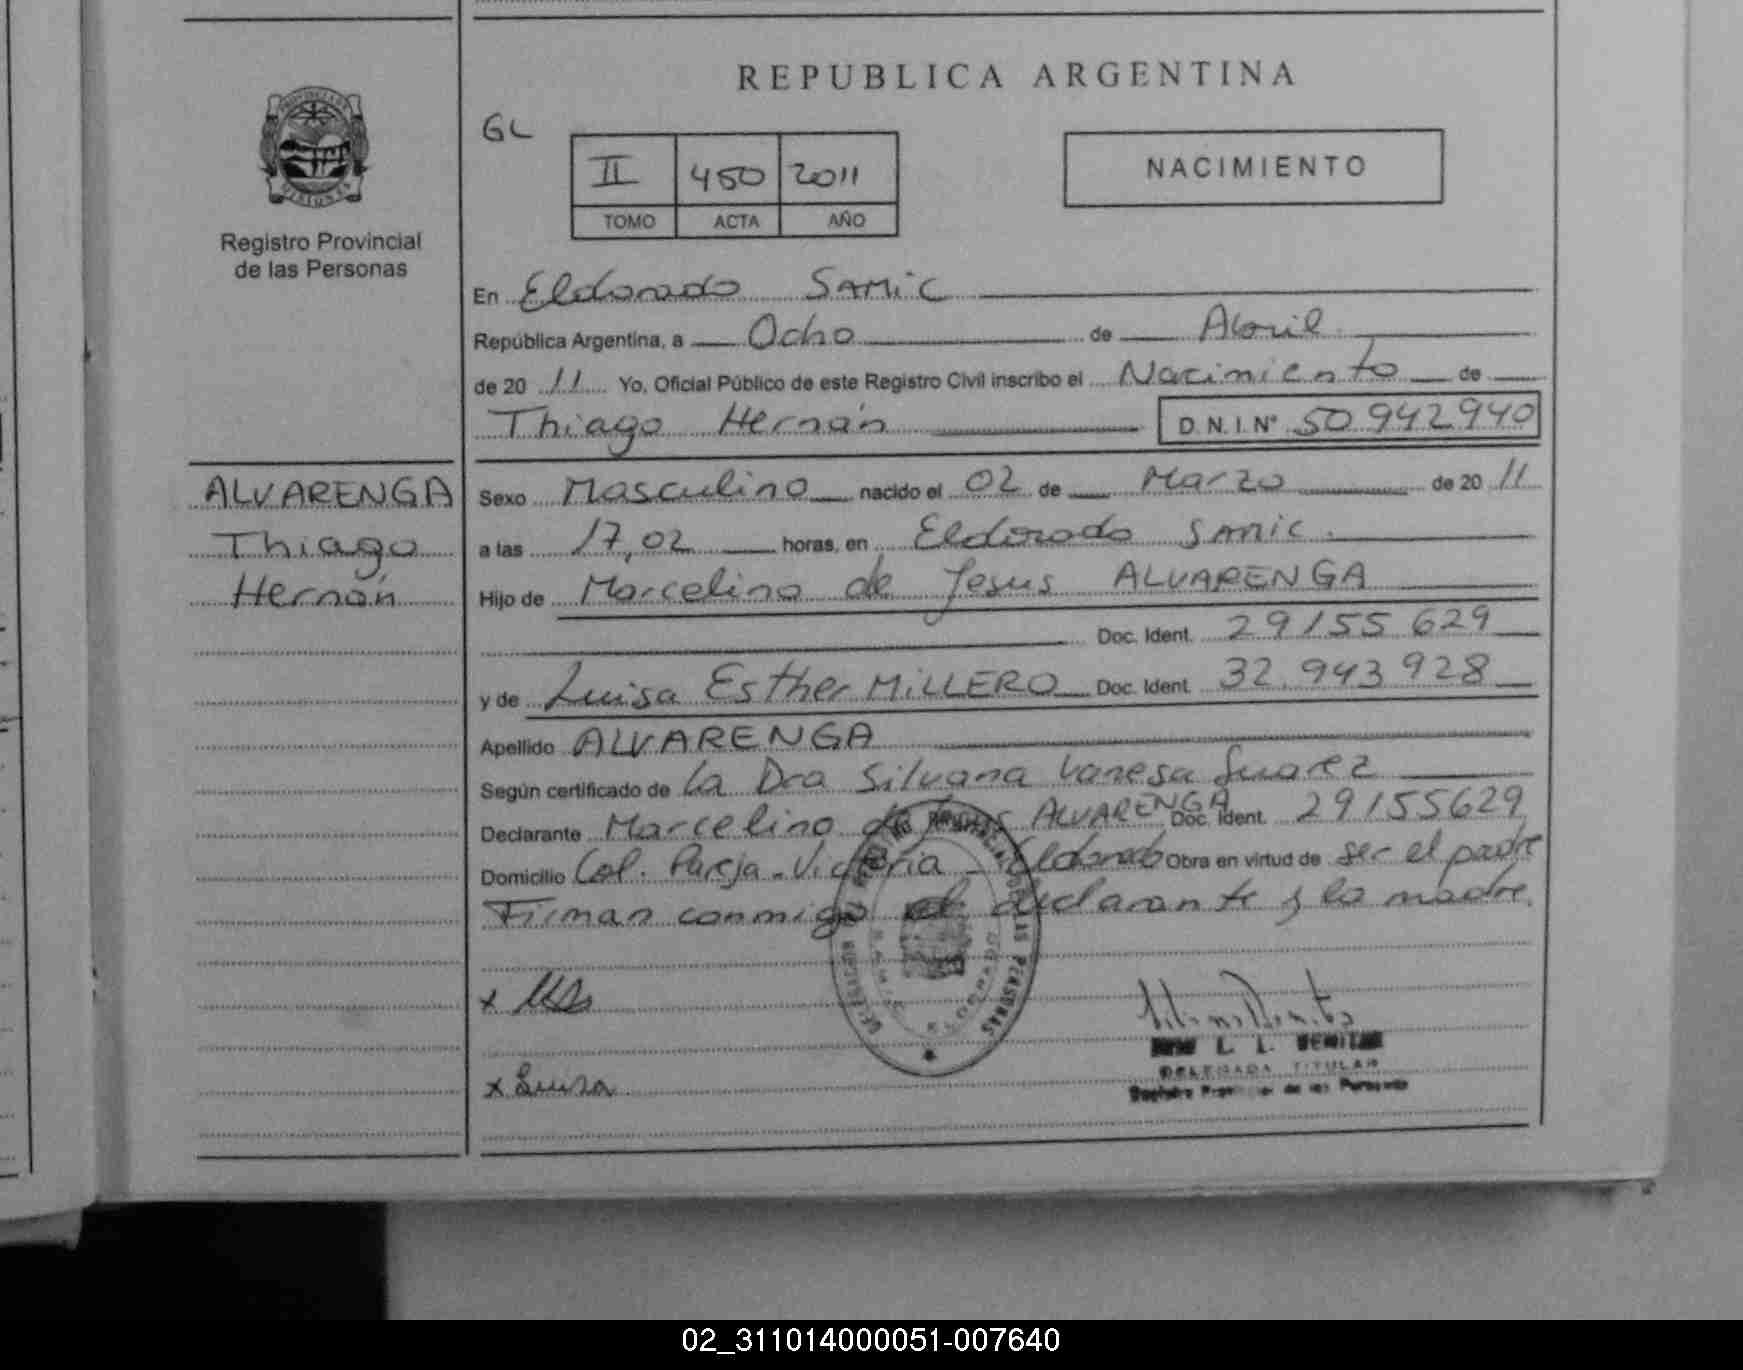 REPUBLICA ARGENTINA
GL
II 450 2011
TOMO ACTA AÑO
NACIMIENTO
PROVINCIA DE MISIONES
Registro Provincial
de las Personas
En Eldorado SAMiC
República Argentina, a Ocho de Abril
de 20 11 Yo, Oficial Público de este Registro Civil inscribo el Nacimiento de
Thiago Hernán D.N.I. Nº 50.942.940
ALVARENGA
Thiago
Hernán
Sexo Masculino nacido el 02 de Marzo de 20 11
a las 17,02 horas, en Eldorado SAMIC.
Hijo de Marcelino de Jesus ALVARENGA
Doc. Ident. 29155629
y de Luisa Esther MiLLERO Doc. Ident. 32.943928
Apellido ALVARENGA
Según certificado de la Dra Silvana Vanesa Suarez
Declarante Marcelino de Jesus ALVARENGA Doc. Ident. 29155629
Domicilio Col. Pareja - Victoria - Eldorado Obra en virtud de ser el padre
Firman conmigo el declarante y la madre.
x
x Luisa
L. L. BENITEZ
DELEGADA TITULAR
Registro Provincial de las Personas
02_311014000051-007640